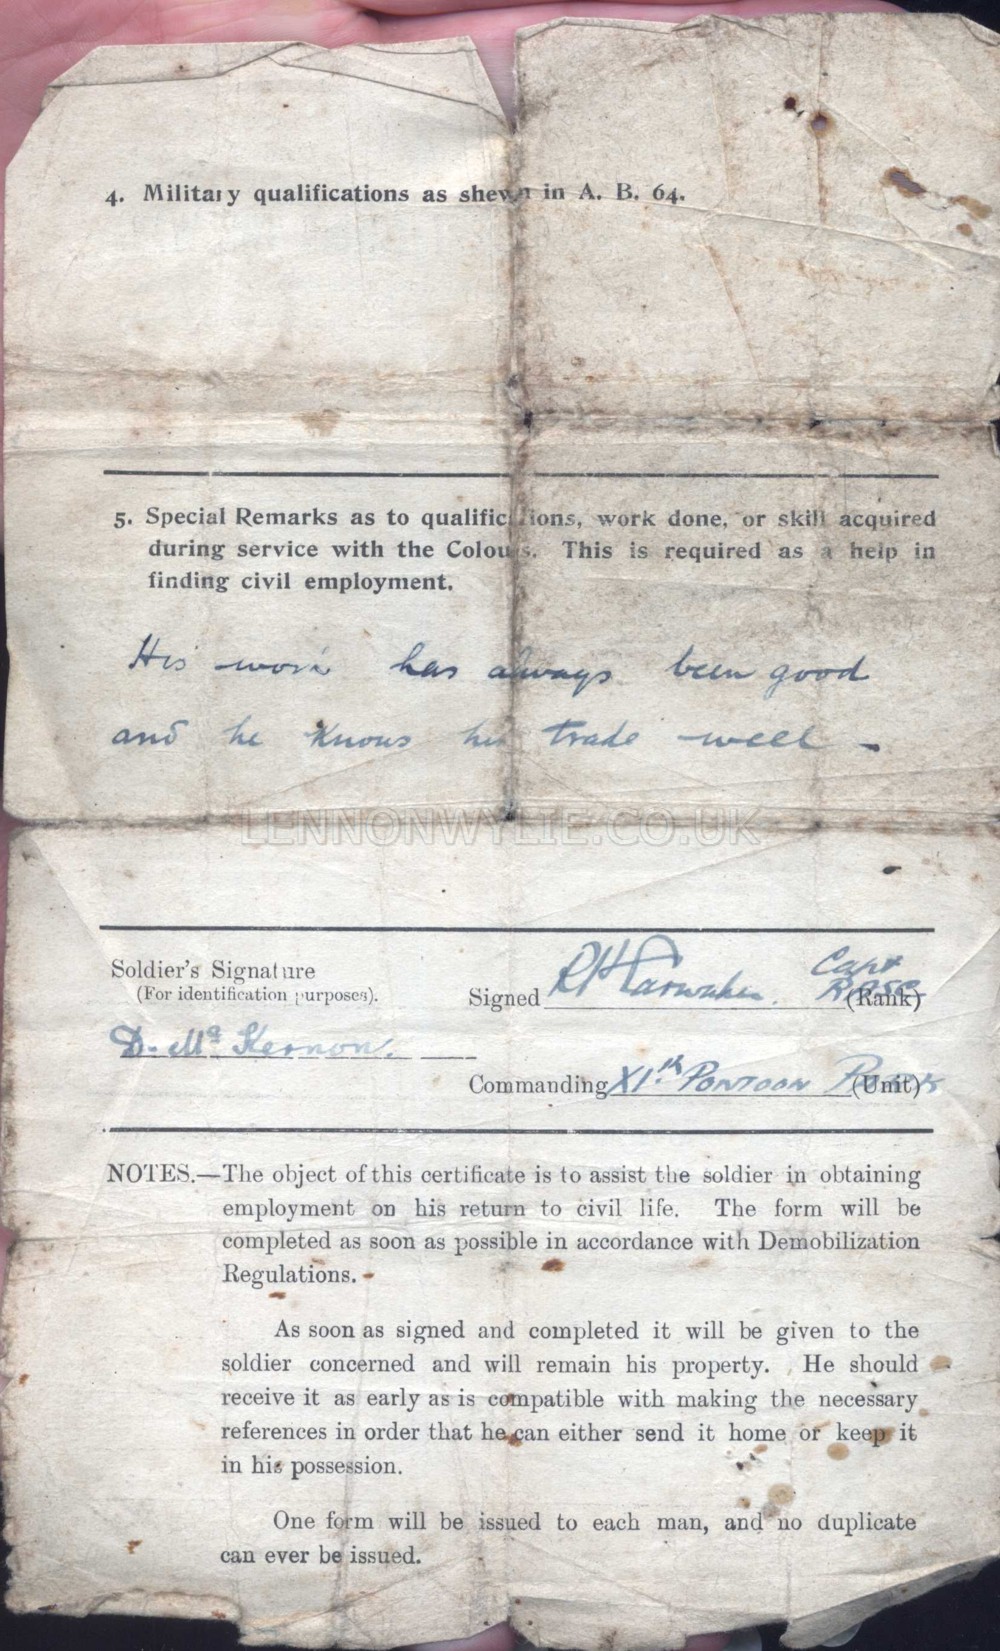 4. Military qualifications as shewn in A. B. 64.
5. Special Remarks as to qualifications, work done, or skill acquired
during service with the Colours. This is required as a help in
finding civil employment.
His work has always been good
and he knows his trade well -
LENNONWYLIE.CO.UK
Soldier's Signature
(For identification purposes).
Signed Capt
(Rank)
D. Mc Kernon.
Commanding XIth PONTOON (Unit)
NOTES.—The object of this certificate is to assist the soldier in obtaining
employment on his return to civil life. The form will be
completed as soon as possible in accordance with Demobilization
Regulations.
As soon as signed and completed it will be given to the
soldier concerned and will remain his property. He should
receive it as early as is compatible with making the necessary
references in order that he can either send it home or keep it
in his possession.
One form will be issued to each man, and no duplicate
can ever be issued.